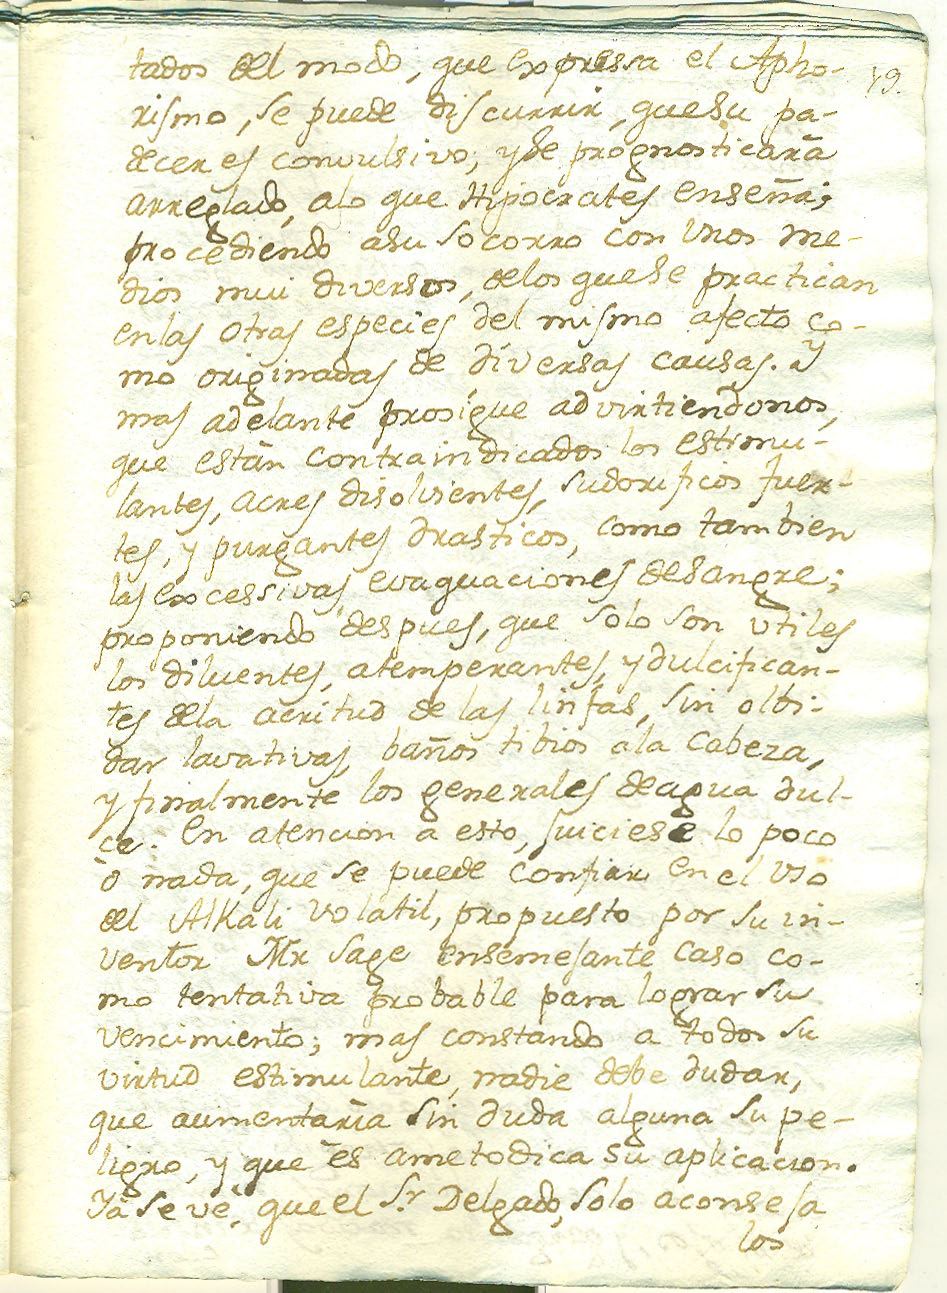 tados del modo, que expressa el Apho-
19.
rismo, se puede discurrir, que su pa-
decer es convulsivo; y de prognosticarà
arreglado, alo que Hipocrates enseña;
procediendo asu socorro con unos me-
dios mui diversos, delos que se practican
enlas otras especies del mismo afecto co-
mo originadas de diversas causas. Y
mas adelante prosigue advirtiendonos,
que estàn contraindicados los estimu-
lantes, acres disolvientes, sudorificos fuer-
tes, y purgantes drasticos, como tambien
las excessivas evaquaciones desangre;
proponiendo despues, que solo son utiles
los diluentes, atemperantes, y dulcifican-
tes dela acritud de las linfas, sin olbi-
dar lavativas, baños tibios ala Cabeza,
y finalmente los generales deagua dul-
ce. En atencion a esto, juiciese lo poco
ò nada, que se puede confiar en el uso
del Alkali volatil, propuesto por su in-
ventor Mr Sage ensemejante caso co-
mo tentativa probable para lograr su
vencimiento; mas constando a todos su
virtud estimulante, nadie debe dudar,
que aumentarìa sin duda alguna su pe-
ligro, y que ès ametodica su aplicacion.
Yà se vè, que el Sr. Delgado, solo aconseja
los